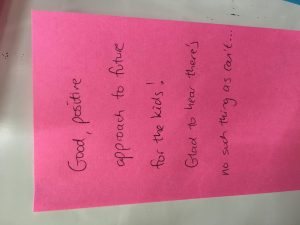 Good, positive
approach to future
for the kids!
Glad to hear there's
no such thing as can't...